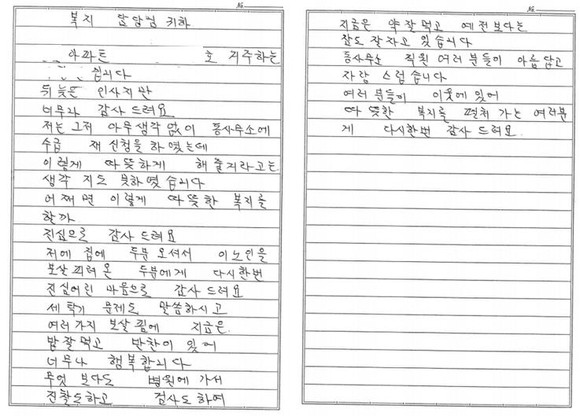 복지 담당님 귀하
아파트 호 거주하는
씁니다
뒤늦은 인사지만
너무나 감사 드려요
저는 그저 아무생각 없이 동사무소에
수급 재 신청을 하였는데
이렇게 따뜻하게 해 줄거라고는
생각 지도 못하였습니다
어쩌면 이렇게 따뜻한 복지를
할까
진심으로 감사 드려요
저에 집에 두분 오셔서 이노인을
보살피려 온 두분에게 다시한번
진심어린 마음으로 감사 드려요
세탁기 문제도 말씀하시고
여러가지 보살핌에 지금은
밥잘먹고 반찬이 있어
너무나 행복합니다
무엇 보다도 병원에 가서
진찰도하고 검사도 하여
지금은 약 잘먹고 예전보다는
잠도 잘자고 있습니다
동사무소 직원 여러분들이 아름답고
자랑 스럽습니다
여러분들이 이웃에 있어
따뜻한 복지를 펼쳐 가는 여러분
게 다시한번 감사 드려요